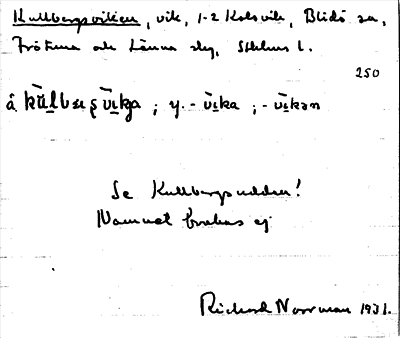 Kullbergsviken, vik, 1-2 Kolsvik, Blidö sn,
Frötuna och Länna slg, Sthlms l.
250
å ; y. - vika ; - vikən
Se Kullbergsudden!
Namnet brukas ej
Richard Norrman 1931.